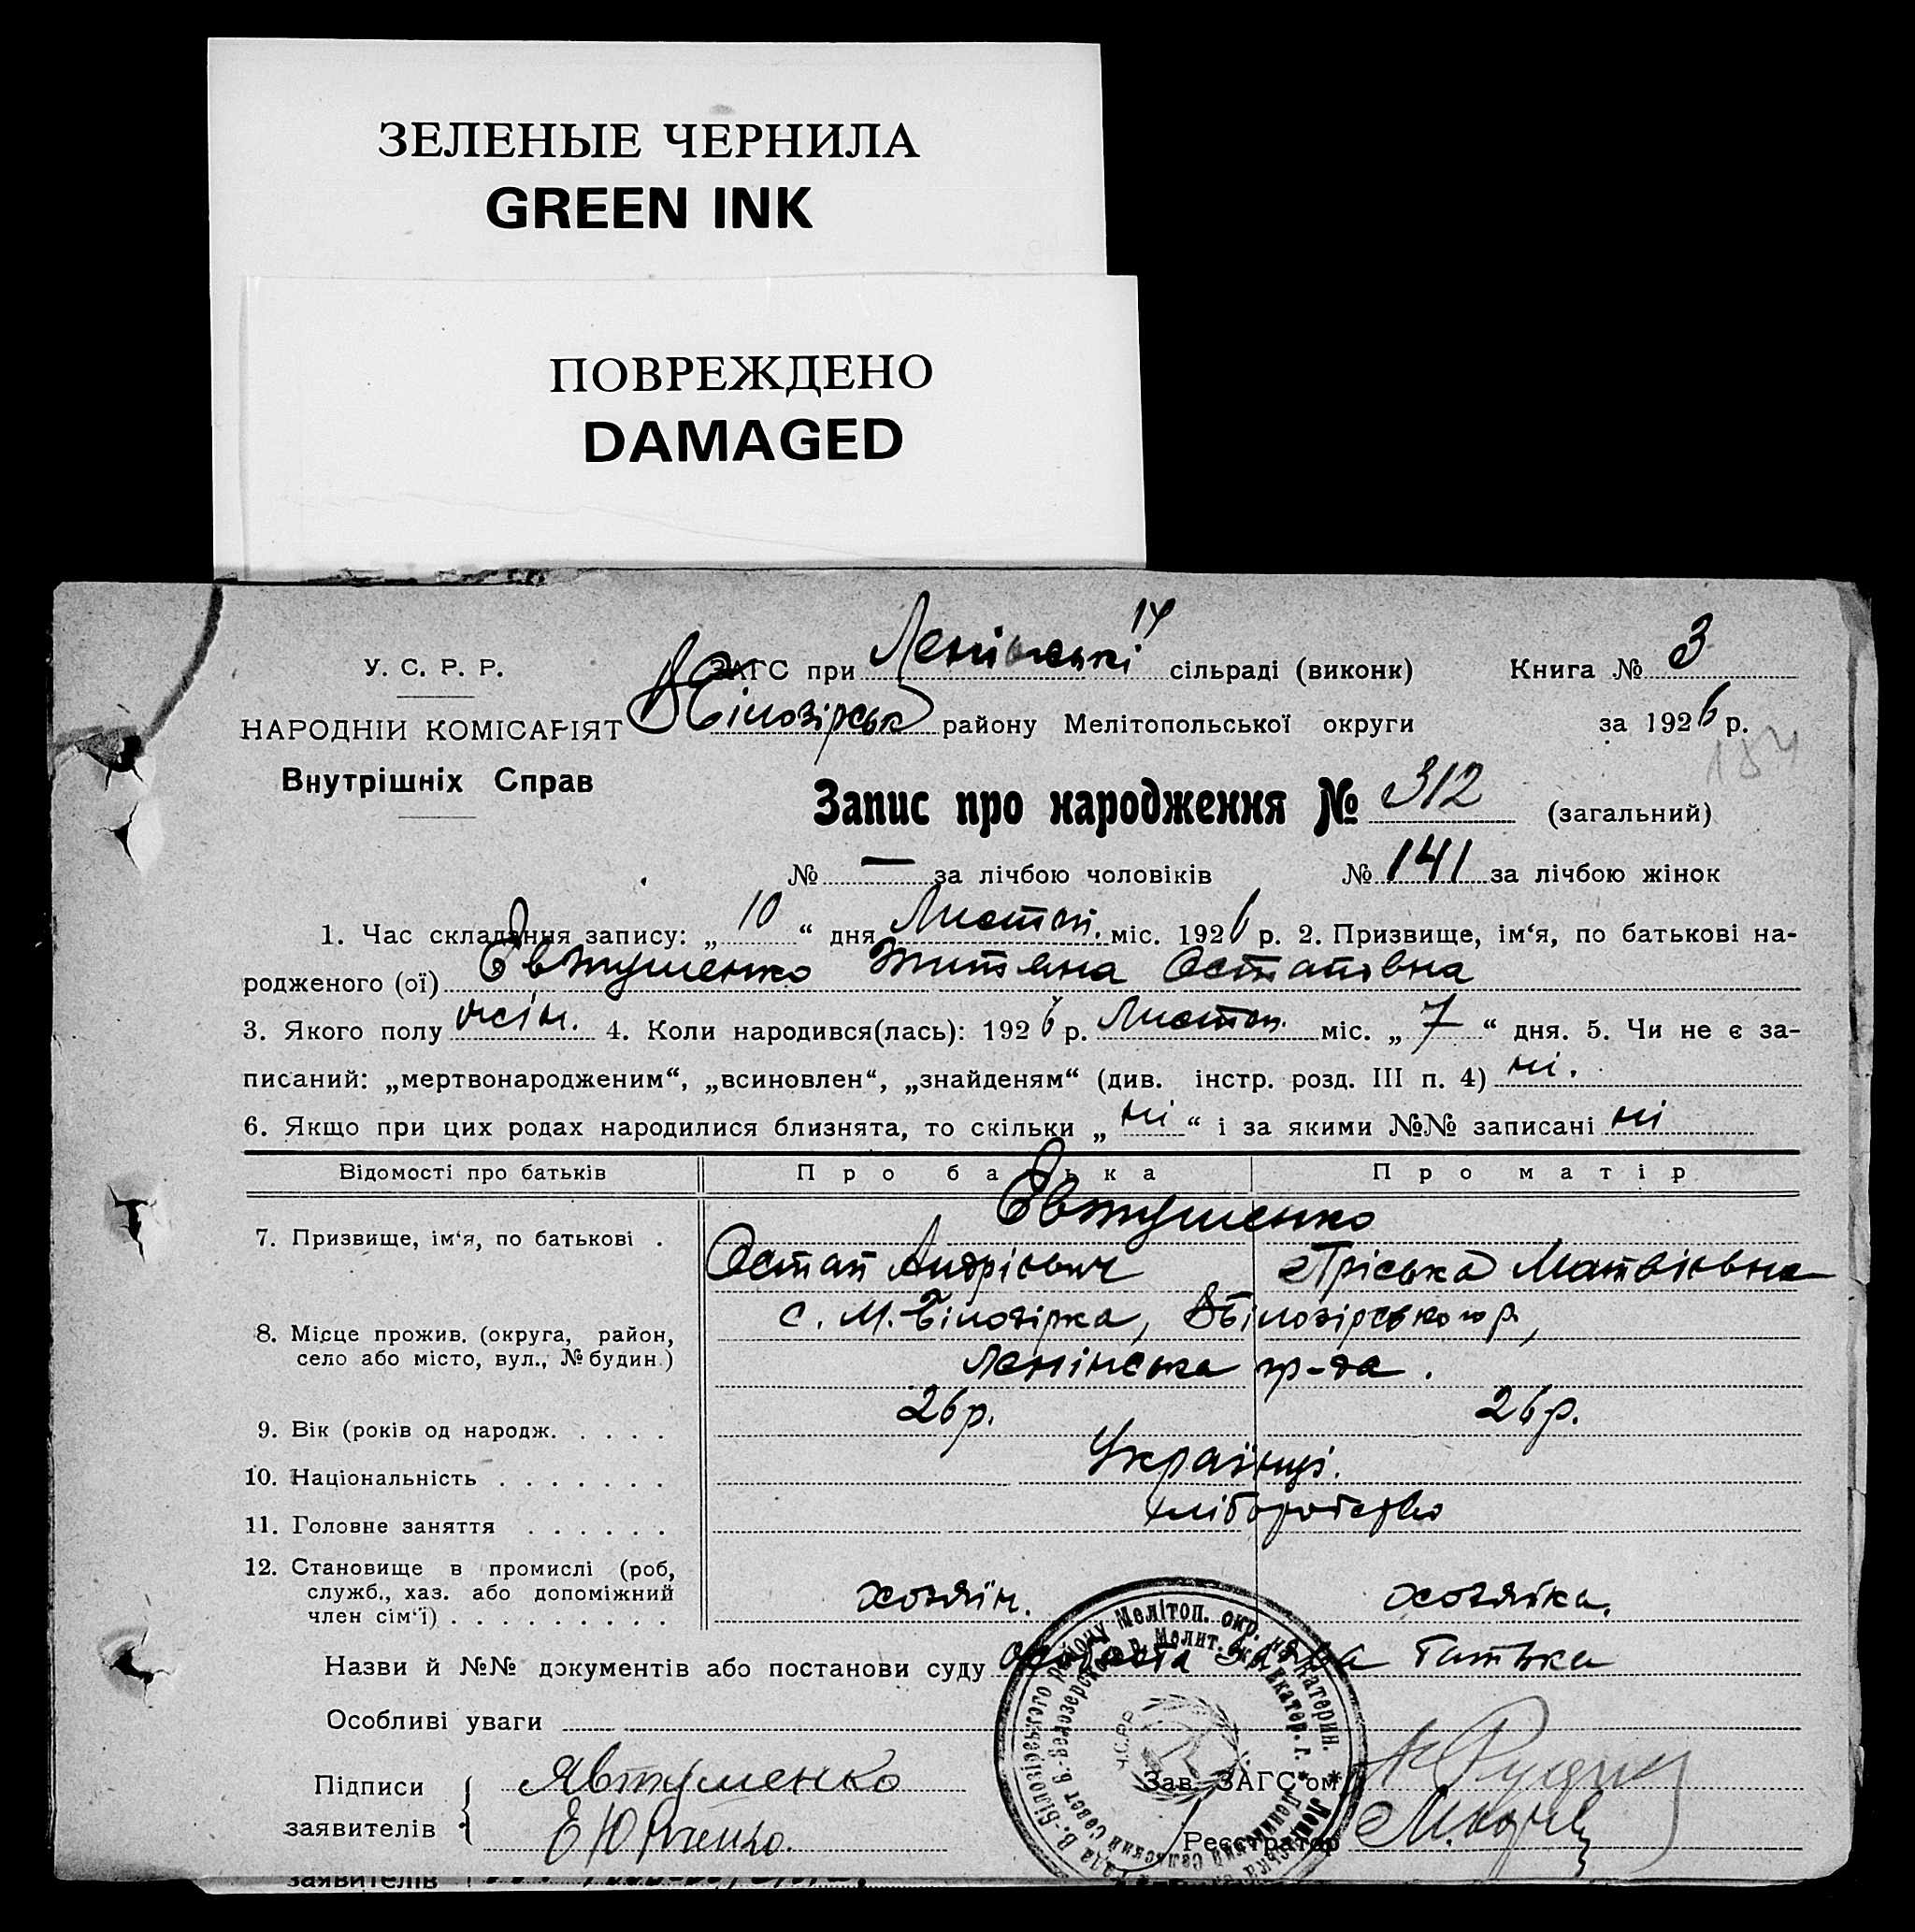 ЗЕЛЕНЫЕ ЧЕРНИЛА
GREEN INK
ПОВРЕЖДЕНО
DAMAGED
У. С. Р. Р.
НАРОДНІЙ КОМІСАРІЯТ
Внутрішніх Справ
14
ЗАГС при Ленінській сільраді (виконк) Книга № 3
В Білозірськ району Мелітопольської округи за 1926 р.
184
Запис про народження № 312 (загальний)
№ — за лічбою чоловіків № 141 за лічбою жінок
1. Час складання запису: „10“ дня Листоп. міс. 1926 р. 2. Призвище, ім‘я, по батькові на-
родженого (ої) Євтушенко Титяна Остапівна
3. Якого полу жін. 4. Коли народився(лась): 1926 р. Листоп. міс. „7“ дня. 5. Чи не є за-
писаний: „мертвонародженим“, „всиновлен“, „знайденям“ (див. інстр. розд. III п. 4) ні.
6. Якщо при цих родах народилися близнята, то скільки „ні“ і за якими №№ записані ні
Відомості про батьків Про батька Про матір
Євтушенко
7. Призвище, ім‘я, по батькові .
Остап Андрієвич Пріська Матвієвна
с. М.-Білозірка, ВБілозірського р.,
8. Місце прожив. (округа, район,
село або місто, вул., № будин.)
Ленінська гр-да.
9. Вік (років од народж. . . . . 26 р. 26 р.
10. Національність . . . . . . . Українці.
11. Головне заняття . . . . . . хліборобство
12. Становище в промислі (роб,
служб., хаз. або допоміжний
член сім‘ї) . . . . . . . . . хозяїн. хозяйка.
Назви й №№ документів або постанови суду особиста заява батька
Особливі уваги
Підписи
заявителів
Явтушенко
Е Юрченко.
Зав. ЗАГС‘ом
Реєстратор
В.-Білозірського району Мелітоп. окр. на Катерин.
У.С.Р.Р.
заявителів